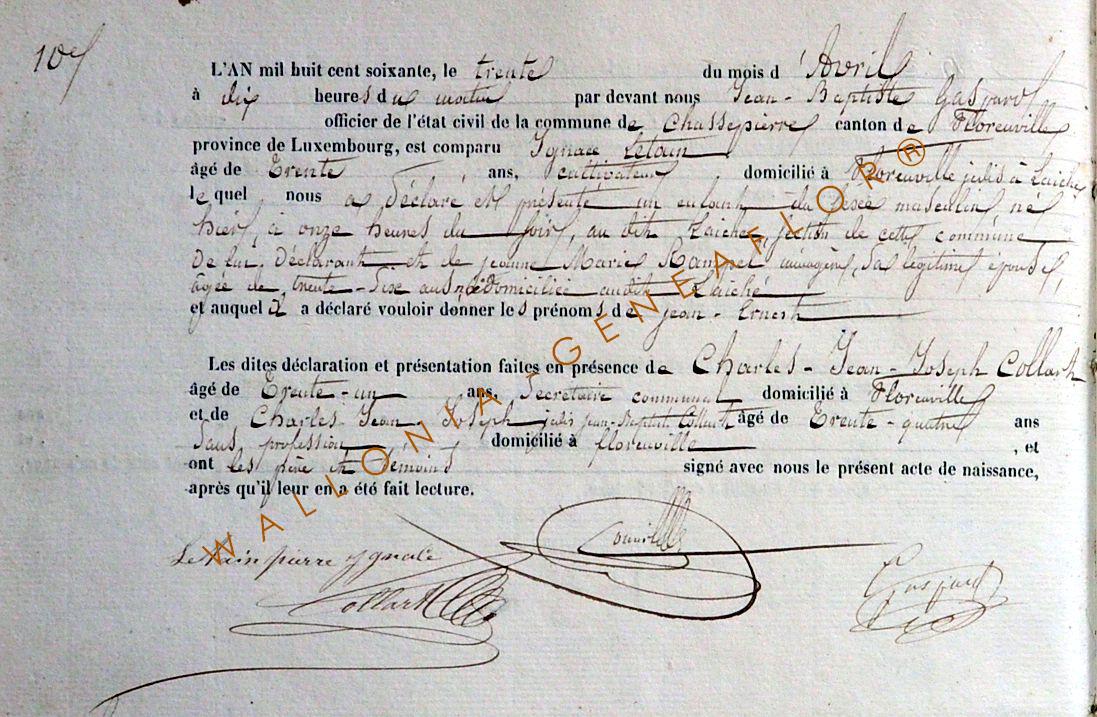 10
L'AN mil huit cent soixante, le trente du mois d'Avril
à dix heures du matin par devant nous Jean-Baptiste Gaspard
officier de l'état civil de la commune de Chassepierre canton de Florenville
province de Luxembourg, est comparu Ignace Letain
âgé de Trente ans, cultivateur domicilié à Florenville jadis à Laiche
lequel nous a déclaré et présenté un enfant du sexe masculin, né
hier, à onze heures du soir, au dit Laiche, section de cette commune
de lui, déclarant et de Jeanne Marie ménagère, sa légitime épouse,
âgée de trente-six ans, domiciliée audit Laiche
et auquel il a déclaré vouloir donner les prénoms de Jean-Ernest
Les dites déclaration et présentation faites en présence de Charles-Jean-Joseph Collart
âgé de Trente-un ans, Secrétaire communal domicilié à Florenville
et de Charles Jean Joseph jadis Jean-Baptist. Collart âgé de Trente-quatre ans
Sans profession domicilié à florenville, et
ont les père et témoins signé avec nous le présent acte de naissance,
après qu'il leur en a été fait lecture.
Letain pierre ygnace
Collart
Gaspard
WALLONIA - GENEAFLOR ®